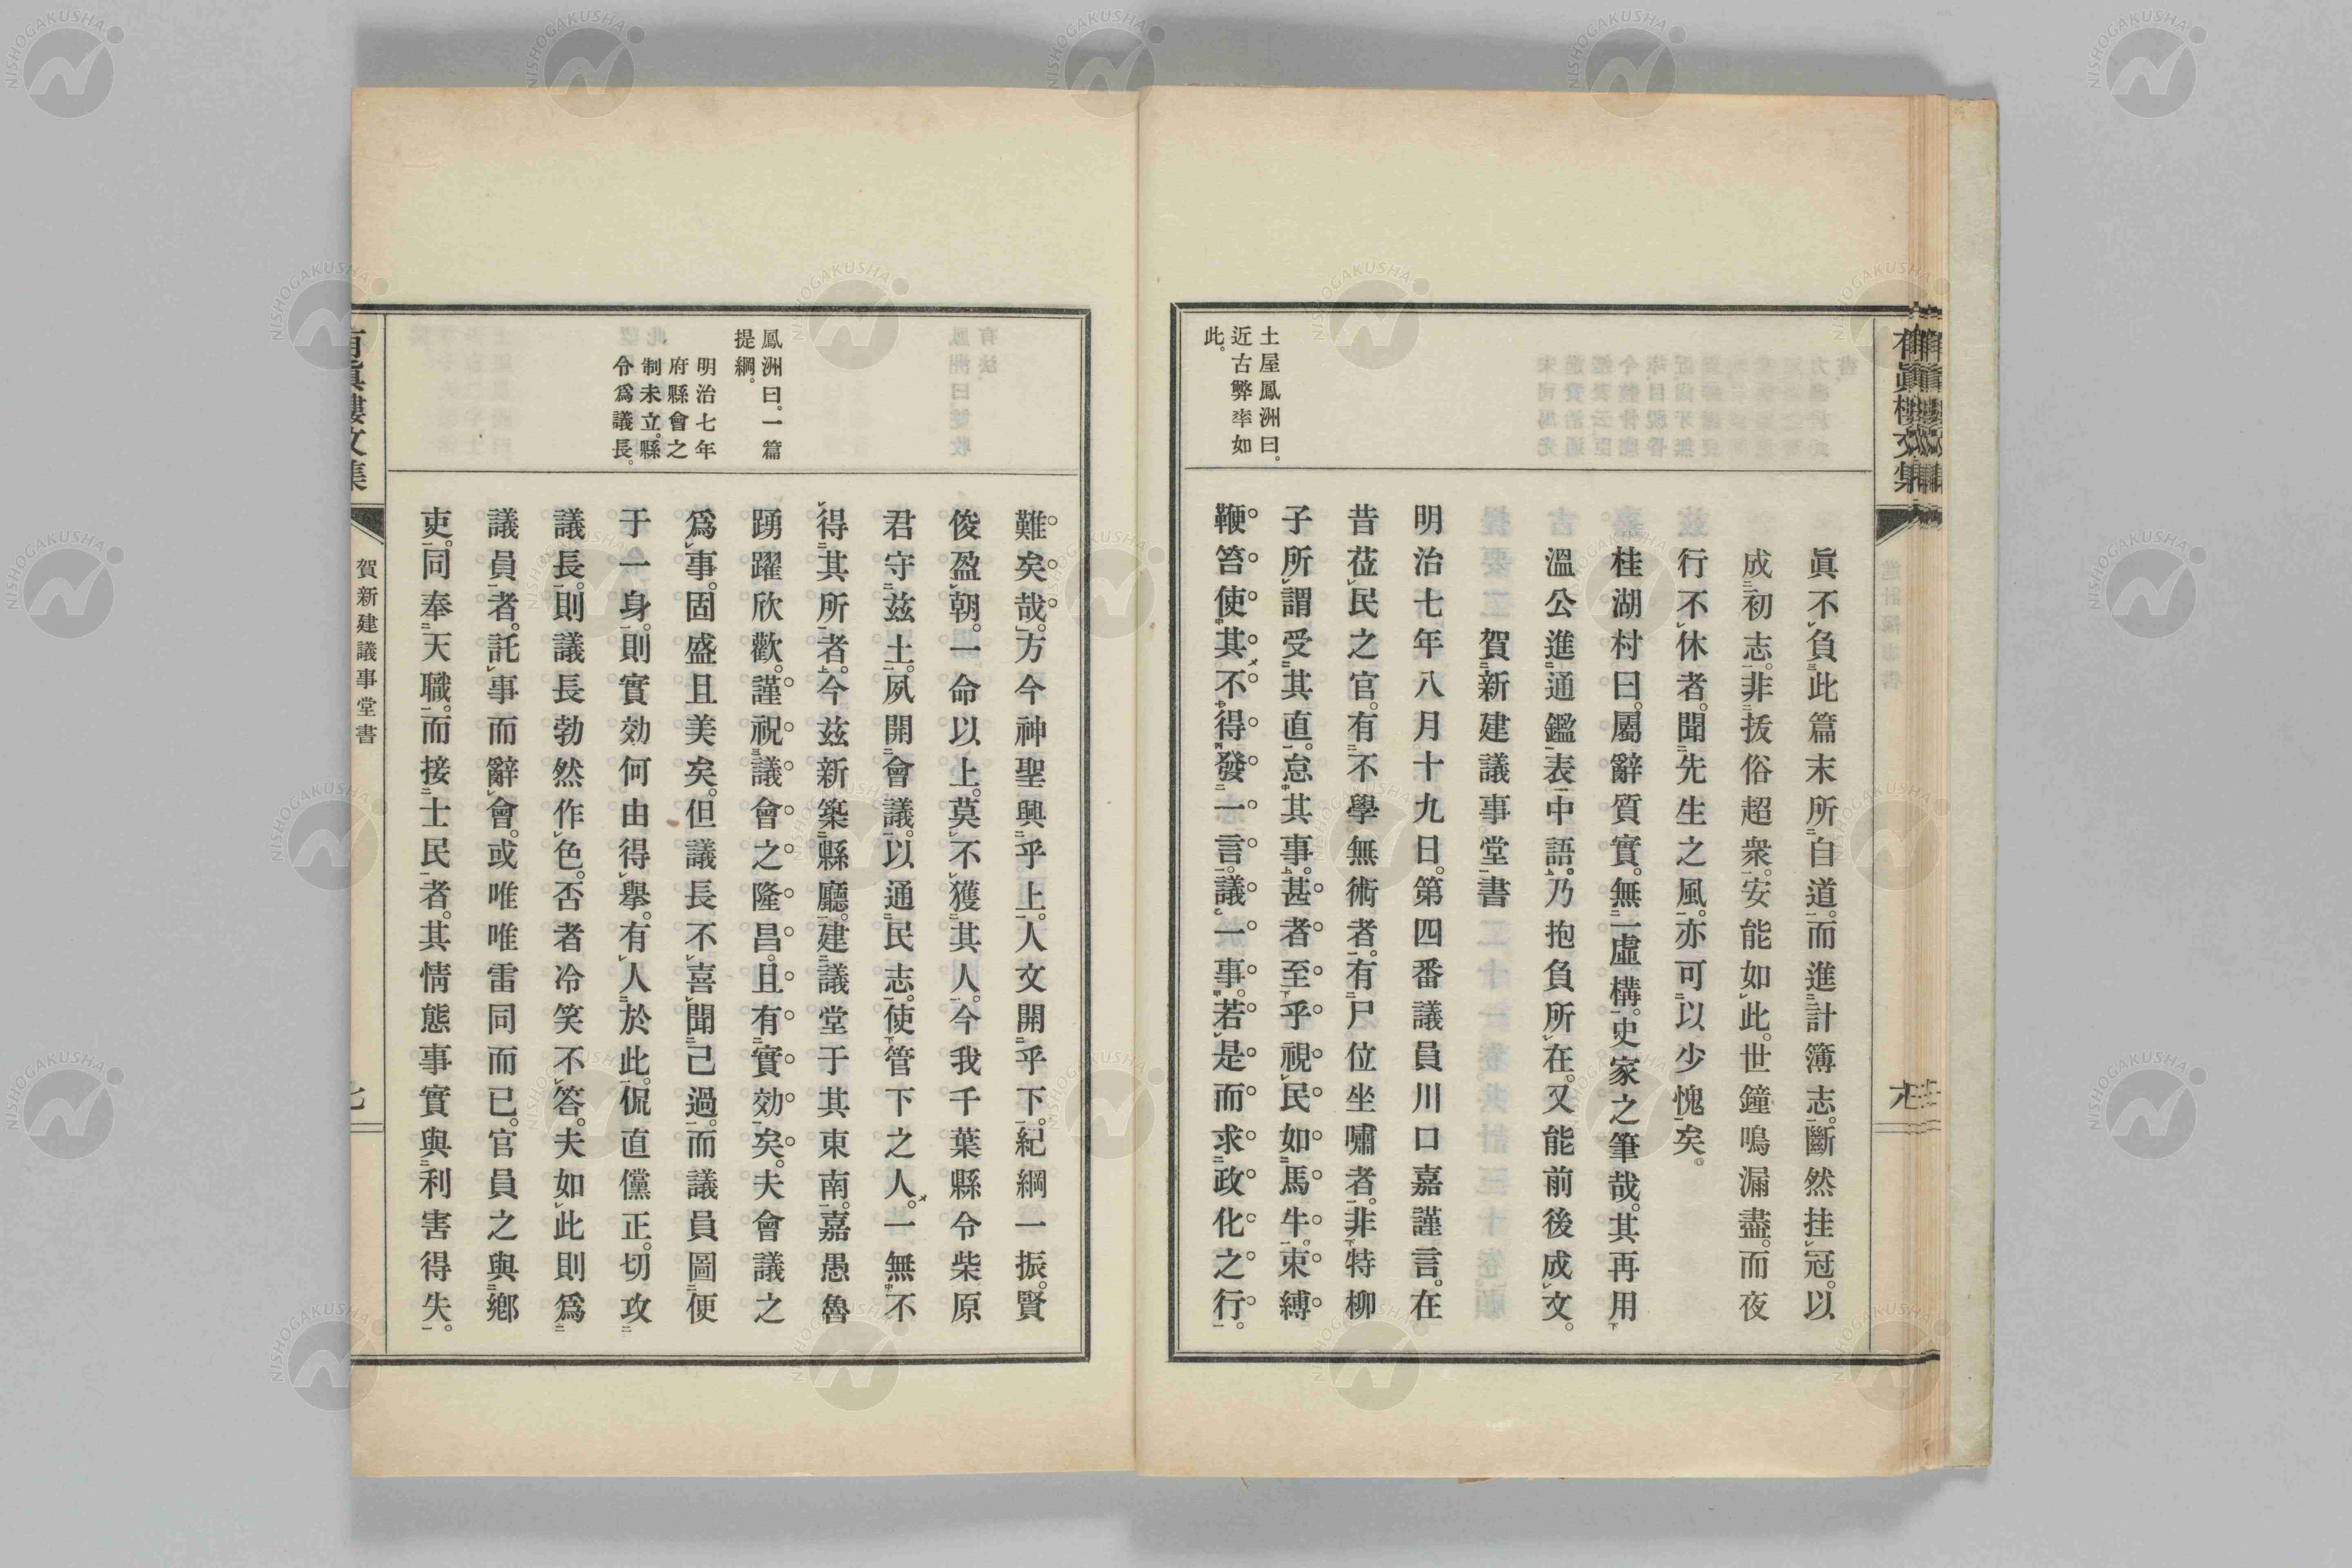 有眞樓文集
眞不負此篇末所自道。而進計簿志。斷然挂冠。以
成初志。非拔俗超衆。安能如此。世鐘鳴漏盡。而夜
行不休者。聞先生之風。亦可以少愧矣。
桂湖村曰。屬辭質實。無一虛構。史家之筆哉。其再用
溫公進通鑑表中語。乃抱負所在。又能前後成文。
賀新建議事堂書
明治七年八月十九日。第四番議員川口嘉謹言。在
昔莅民之官。有不學無術者。有尸位坐嘯者。非特柳
子所謂受其直。怠其事。甚者至乎視民如馬牛。束縛
鞭笞。使其不得發一言。議一事。若是而求政化之行。
土屋鳳洲曰。
近古弊率如
此。
難矣哉。方今神聖興乎上。人文開乎下。紀綱一振。賢
俊盈朝。一命以上。莫不獲其人。今我千葉縣令柴原
君守玆土。夙開會議。以通民志。使管下之人。一無不
得其所者。今玆新築縣廳。建議堂于其東南。嘉愚魯
踴躍欣歡。謹祝議會之隆昌。且有實効矣。夫會議之
爲事。固盛且美矣。但議長不喜聞己過。而議員圖便
于一身。則實効何由得擧。有人於此。侃直儻正。切攻
議長。則議長勃然作色。否者冷笑不答。夫如此則爲
議員者。託事而辭會。或唯唯雷同而已。官員之與鄕
吏。同奉天職。而接士民者。其情態事實與利害得失。
鳳洲曰。一篇
提綱。
明治七年
府縣會之
制未立。縣
令爲議長。
賀新建議事堂書